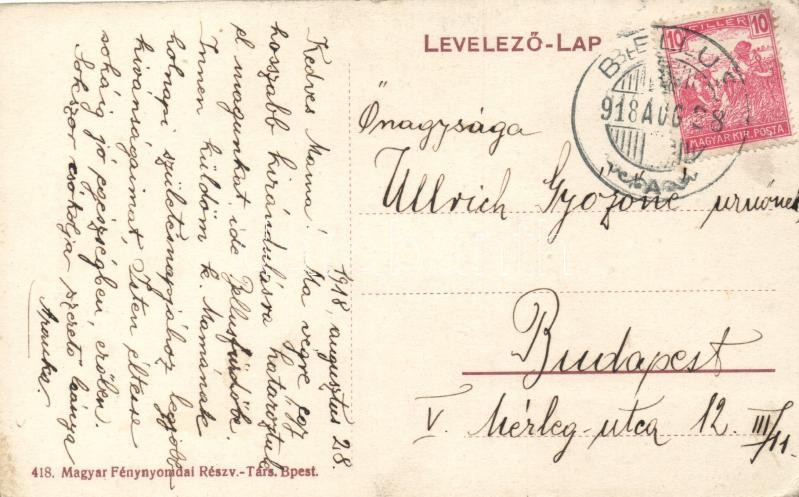 LEVELEZŐ-LAP
10 FILLÉR 10
MAGYAR KIR. POSTA
918 AUG 28
A
1918, augusztus 28.
Kedves Mama! Ma végre egy
hosszabb kirándulásra határoztuk
el magunkat ide Belusfürdőbe.
Innen küldöm k. Mamának
holnapi születésnapjához legjobb
kivánságaimat, Isten éltesse
soká jó egészségben, erőben.
Sokszor csókolja szerető leánya
Aranka.
Őnagysága
Ullrich Győzőné úrnőnek
Budapest
V. Mérleg-utca 12. III/11.
418. Magyar Fénynyomdai Részv.-Társ. Bpest.